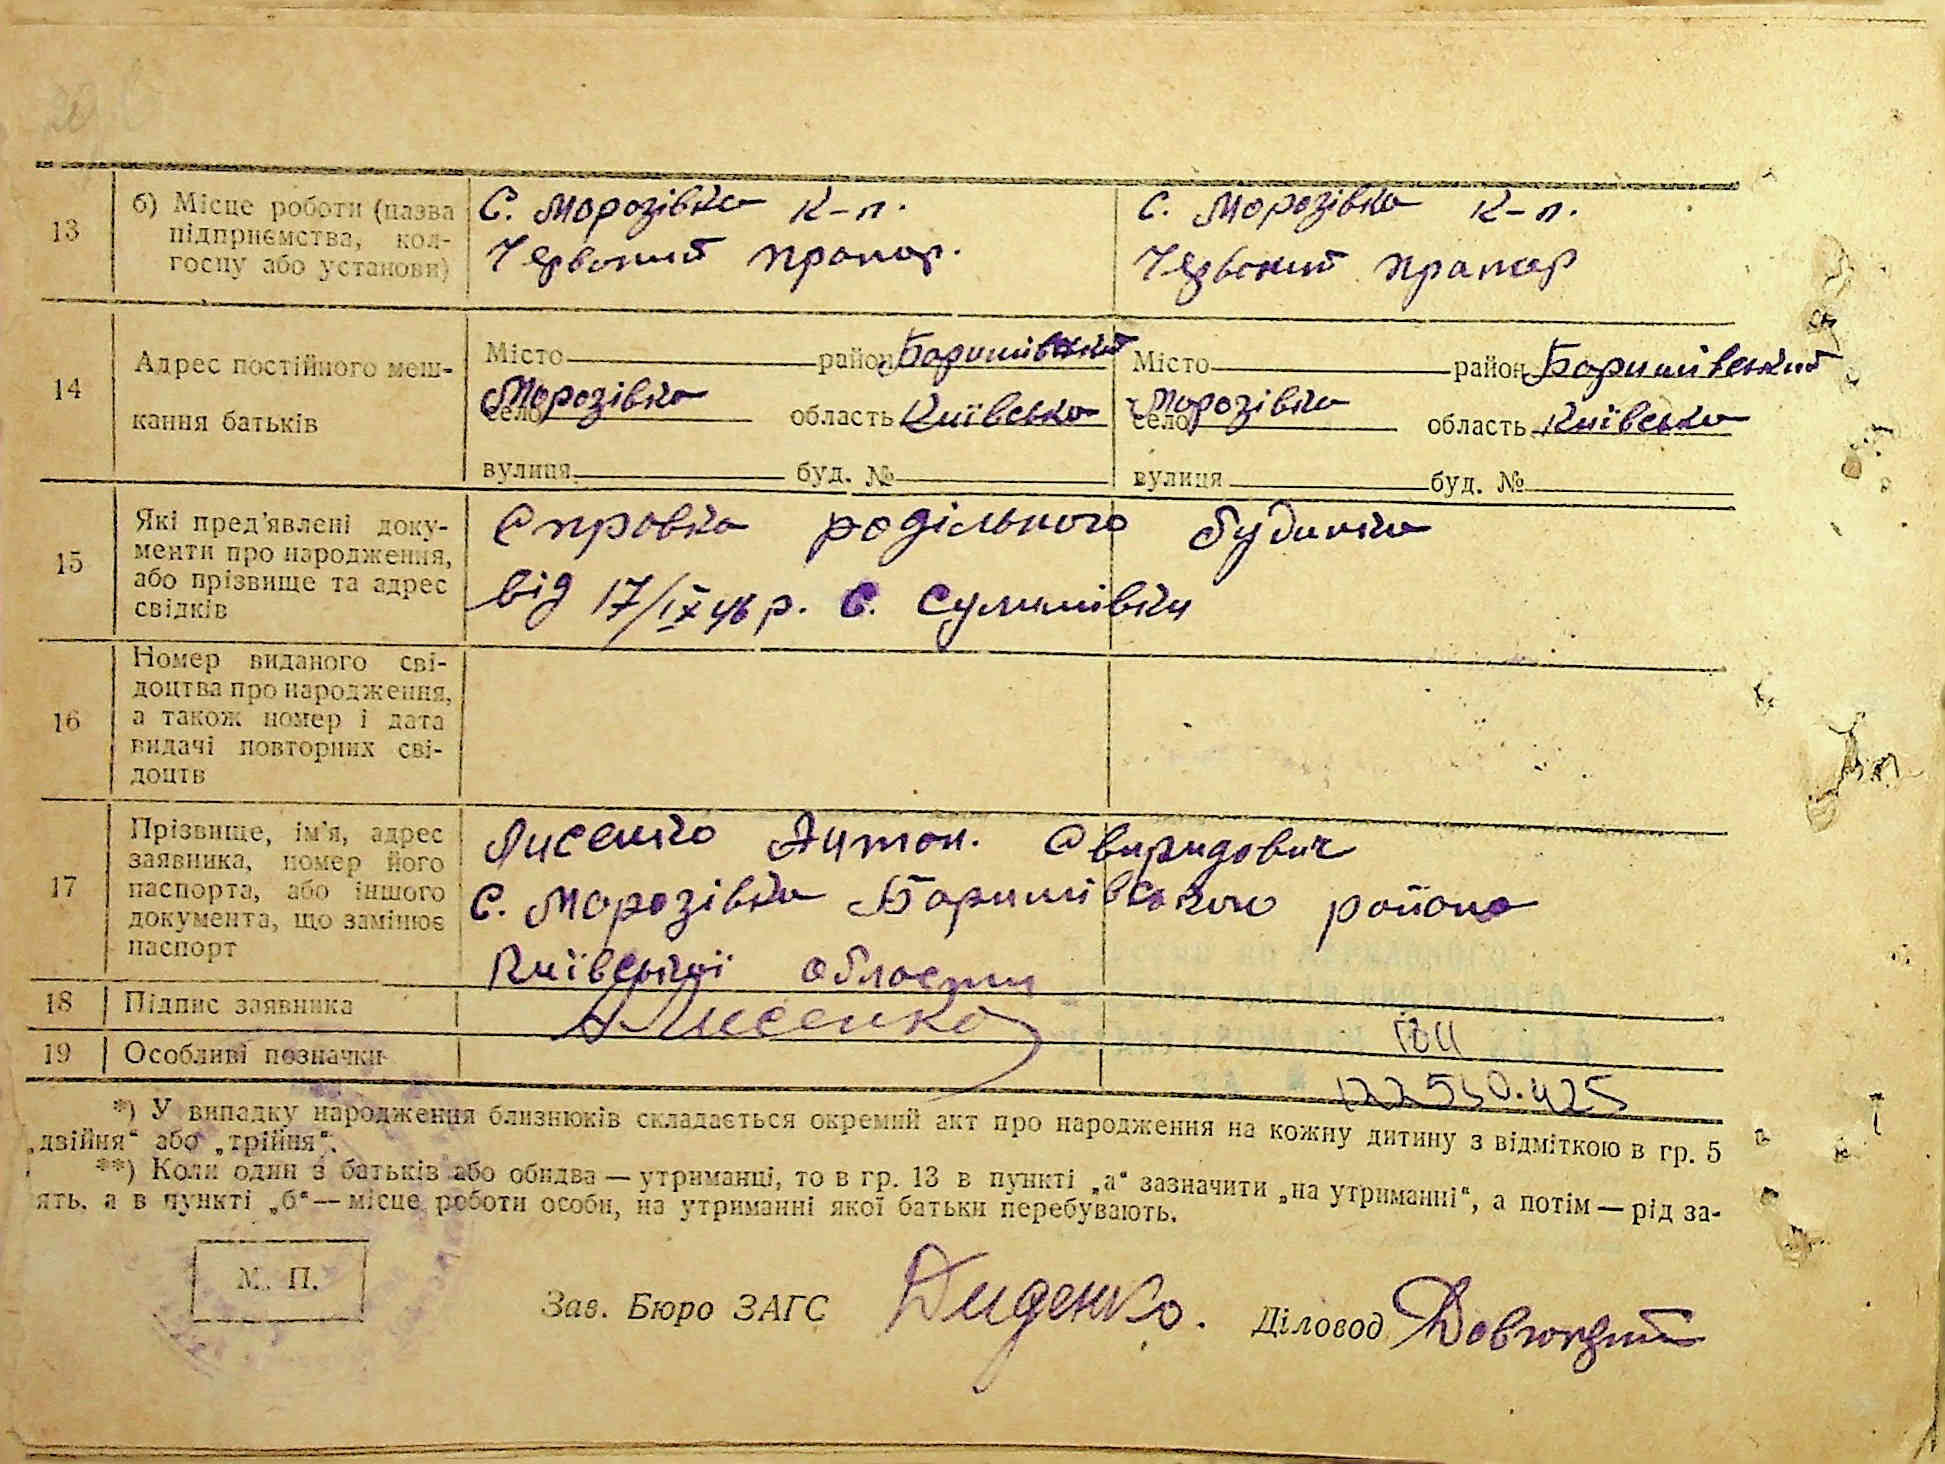 13 б) Місце роботи (назва підприємства, колгоспу або установи)
с. Морозівка к-п. Червоний прапор.
с. Морозівка к-п. Червоний прапор
14 Адрес постійного мешкання батьків
Місто район Баришівський
село Морозівка область Київська
вулиця буд. №
Місто район Баришівський
село Морозівка область Київська
вулиця буд. №
15 Які пред'явлені документи про народження, або прізвище та адрес свідків
Справка родільного будинка
від 17/IX 46 р. с. Сулимівки
16 Номер виданого свідоцтва про народження, а також номер і дата видачі повторних свідоцтв
17 Прізвище, ім'я, адрес заявника, номер його паспорта, або іншого документа, що замінює паспорт
Лисенко Антон. Свиридович
с. Морозівка Баришівського района
Київської области
18 Підпис заявника
А Лисенко
19 Особливі позначки
122530.425
*) У випадку народження близнюків складається окремий акт про народження на кожну дитину з відміткою в гр. 5
„двійня“ або „трійня“.
**) Коли один з батьків або обидва — утриманці, то в гр. 13 в пункті „а“ зазначити „на утриманні“, а потім — рід за-
ять, а в пункті „б“ — місце роботи особи, на утриманні якої батьки перебувають.
М. П.
Зав. Бюро ЗАГС Диденко. Діловод